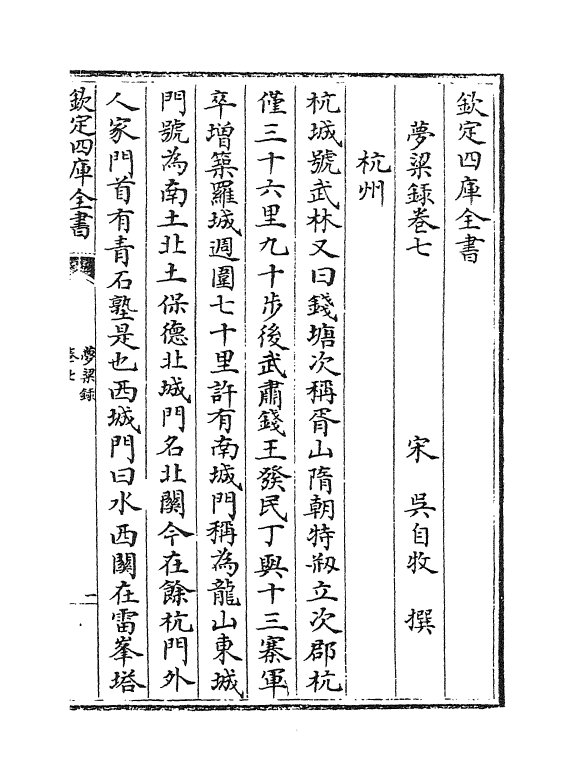 欽定四庫全書
夢粱録卷七
宋 吳自牧 撰
杭州
杭城號武林又曰錢塘次稱胥山隋朝特剏立次郡杭
僅三十六里九十步後武肅錢王發民丁與十三寨軍
卒增築羅城週圍七十里許有南城門稱為龍山東城
門號為南土北土保德北城門名北關今在餘杭門外
人家門首有青石墪是也西城門曰水西關在雷峯塔
欽定四庫全書
夢粱録
卷七
二